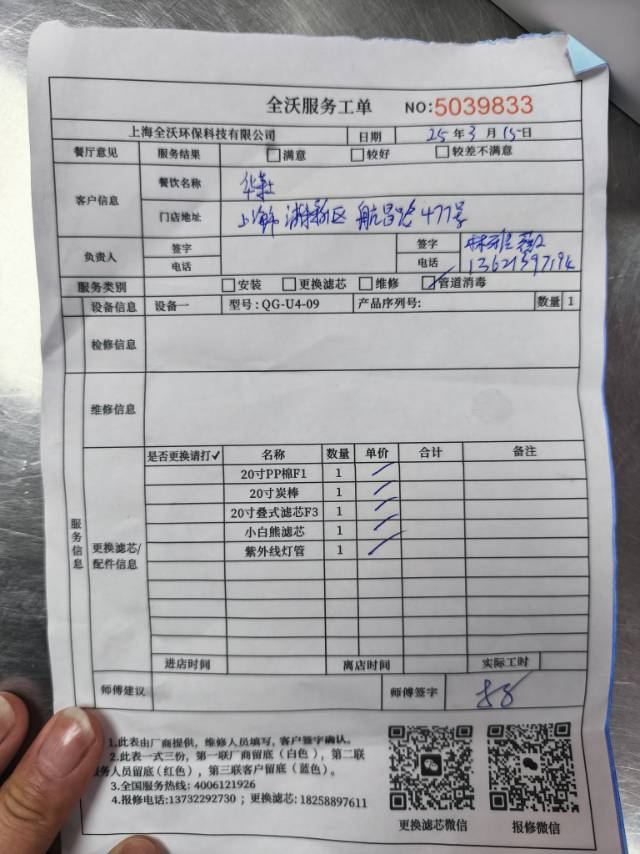 全沃服务工单 NO:5039833
上海全沃环保科技有限公司 日期 25年3月15日
餐厅意见 服务结果 满意 较好 较差不满意
客户信息 餐饮名称 华莱士
门店地址 上海 浦东新区 航昌路477号
负责人 签字 签字
电话 电话
服务类别 安装 更换滤芯 维修 管道消毒
设备信息 设备一 型号:QG-U4-09 产品序列号: 数量 1
检修信息
维修信息
服务信息
更换滤芯/配件信息
是否更换请打✓ 名称 数量 单价 合计 备注
20寸PP棉F1 1
20寸炭棒 1
20寸叠式滤芯F3 1
小白熊滤芯 1
紫外线灯管 1
进店时间 离店时间 实际工时
师傅建议 师傅签字
1.此表由厂商提供，维修人员填写，客户签字确认。
2.此表一式三份，第一联厂商留底（白色），第二联
服务人员留底(红色)，第三联客户留底（蓝色）。
3.全国服务热线: 4006121926
4.报修电话:13732292730；更换滤芯: 18258897611
更换滤芯微信 报修微信